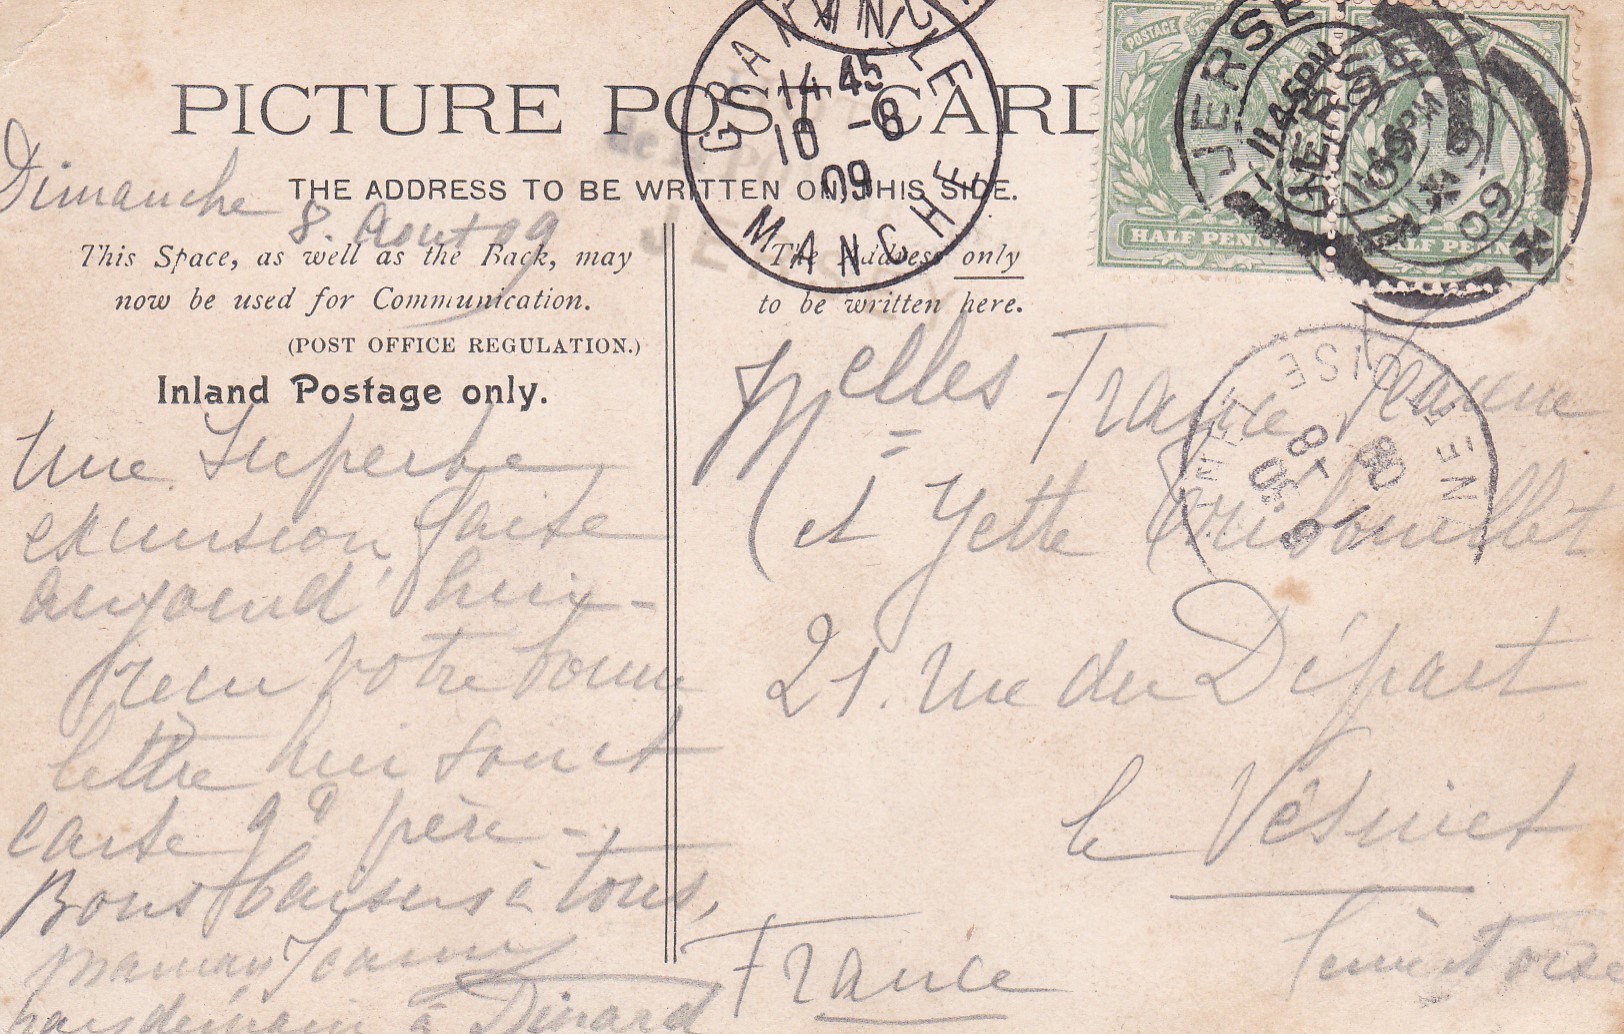 PICTURE POST CARD
THE ADDRESS TO BE WRITTEN ON THIS SIDE.
Dimanche
8. Aout 09
This Space, as well as the Back, may
now be used for Communication.
(POST OFFICE REGULATION.)
Inland Postage only.
The Address only
to be written here.
Une Superbe
excursion faite
aujourd'hui -
reçu votre bonne
lettre hier soir et
carte gd père -
Bons baisers à tous,
maman Jeanne
après demain à Dinard
Melles France Jeanne
et Yette
21. rue du Départ
le Vésinet
Seine et Oise
France
GRANVILLE
14 45
10 - 8
09
MANCHE
JERSEY
11 45 PM
JERSEY
09
POSTAGE
HALF PENNY
HALF PENNY
JE
SEINE ET OISE